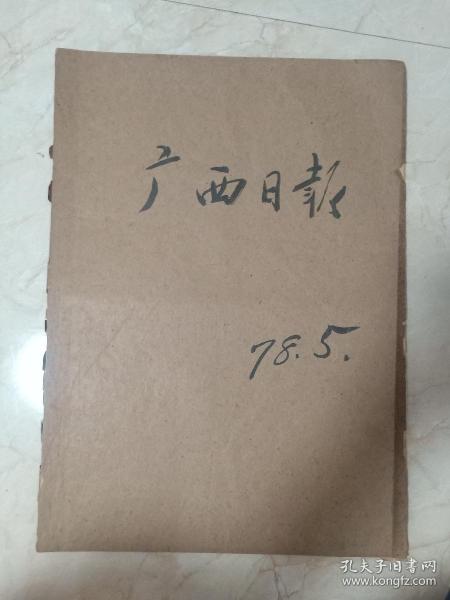 广西日報
78.5.
孔夫子旧书网
www.kongfz.com